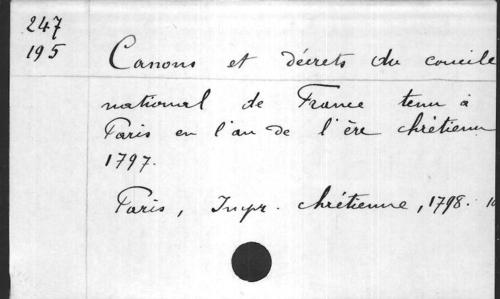 247
195
Canons et décrets du concile
national de France tenu à
Paris en l'an de l'ère chrétienn
1797.
Paris, Impr. chrétienne, 1798.